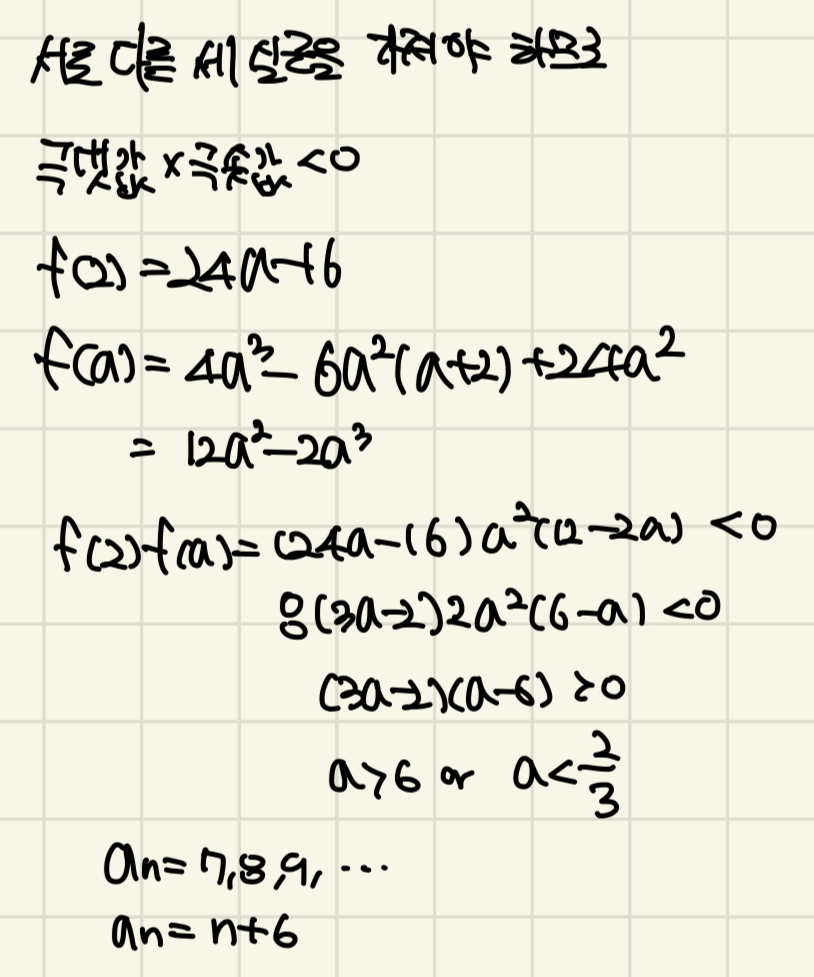 서로 다른 세 실근을 가져야 하므로
극댓값 × 극솟값 < 0
f(2) = 24a-16
f(a) = 4a³ - 6a²(a+2) + 24a²
= 12a² - 2a³
f(2)·f(a) = (24a-16)a²(12-2a) < 0
8(3a-2)2a²(6-a) < 0
(3a-2)(a-6) > 0
a > 6 or a < 2/3
an = 7, 8, 9, ···
an = n+6